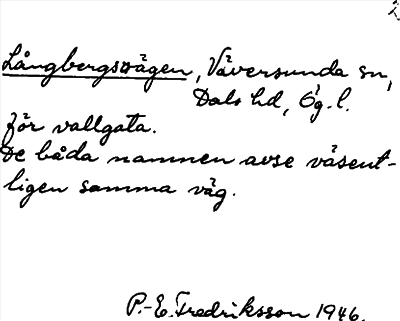 Långbergsvägen, Väversunda sn,
Dals hd, Ög. l.
för vallgata.
De båda namnen avse väsent-
ligen samma väg.
P.-E. Fredriksson 1946.